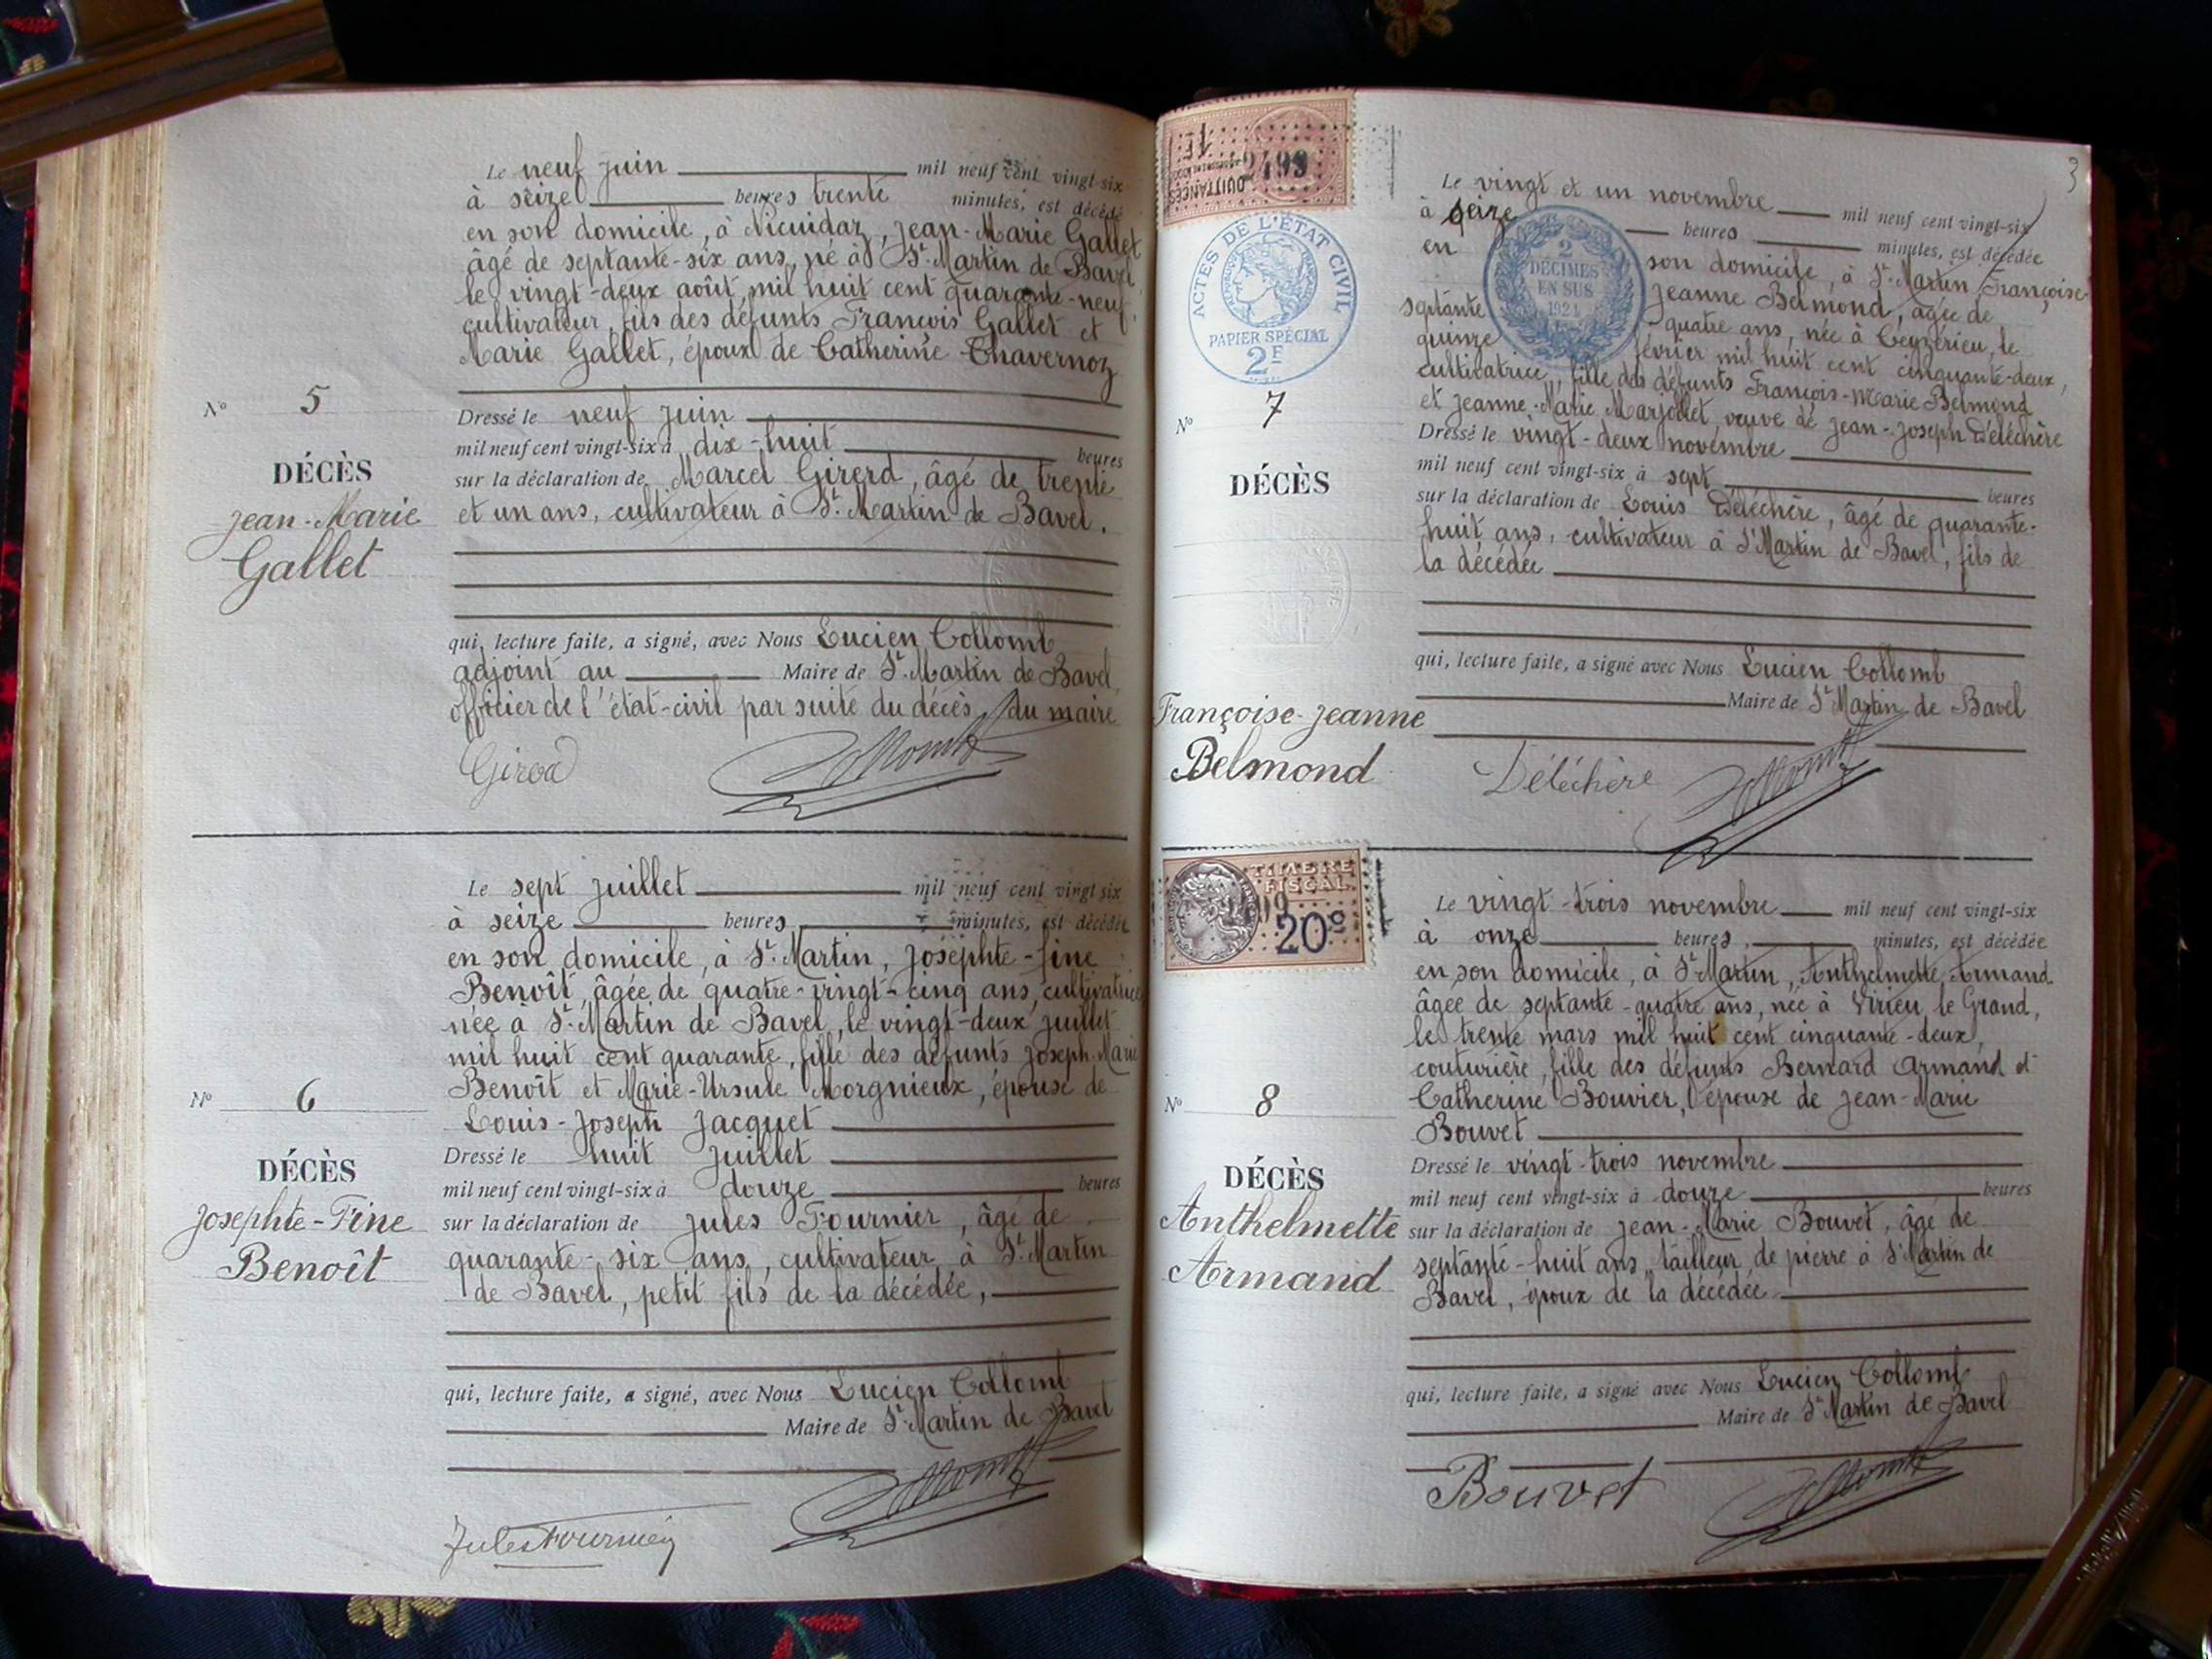 Le neuf juin mil neuf cent vingt-six
à seize heures trente minutes, est décédé
en son domicile, à Nicuidaz, Jean-Marie Gallet
âgé de septante-six ans, né à St. Martin de Bavel
le vingt-deux août mil huit cent quarante-neuf,
cultivateur, fils des défunts François Gallet et
Marie Gallet, époux de Catherine Chavernoz
N° 5
DÉCÈS
Jean-Marie
Gallet
Dressé le neuf juin
mil neuf cent vingt-six à dix-huit heures
sur la déclaration de Marcel Girerd, âgé de trente
et un ans, cultivateur à St. Martin de Bavel.
qui, lecture faite, a signé, avec Nous Lucien Collomb
adjoint au Maire de St. Martin de Bavel,
officier de l'état-civil par suite du décès du maire
Collomb
Le sept juillet mil neuf cent vingt six
à seize heures minutes, est décédée
en son domicile, à St. Martin, Josephte-Fine
Benoît, âgée de quatre-vingt-cinq ans, cultivatrice
née à St. Martin de Bavel, le vingt-deux juillet
mil huit cent quarante, fille des défunts Joseph-Marie
Benoît et Marie-Ursule Morgnieux, épouse de
Louis-Joseph Jacquet
N° 6
DÉCÈS
Josephte-Fine
Benoît
Dressé le huit juillet
mil neuf cent vingt-six à douze heures
sur la déclaration de Jules Fournier, âgé de
quarante-six ans, cultivateur à St. Martin
de Bavel, petit fils de la décédée,
qui, lecture faite, a signé, avec Nous Lucien Collomb
Maire de St. Martin de Bavel
Collomb
Jules Fournier
3
QUITTANCES
1F
2499
ACTES DE L'ÉTAT CIVIL
PAPIER SPÉCIAL
2F
2
DÉCIMES
EN SUS
1921
Le vingt et un novembre mil neuf cent vingt-six
à seize heures minutes, est décédée
en son domicile, à St. Martin, Françoise-
Jeanne Belmond, âgée de
septante quatre ans, née à Ceyzérieu, le
quinze février mil huit cent cinquante-deux,
cultivatrice, fille des défunts François-Marie Belmond
et Jeanne-Marie Marjollet, veuve de Jean-Joseph Déléchère
N° 7
DÉCÈS
Françoise-Jeanne
Belmond
Dressé le vingt-deux novembre
mil neuf cent vingt-six à sept heures
sur la déclaration de Louis Déléchère, âgé de quarante-
huit ans, cultivateur à St Martin de Bavel, fils de
la décédée
qui, lecture faite, a signé avec Nous Lucien Collomb
Maire de St Martin de Bavel
Déléchère Collomb
TIMBRE
FISCAL
20c
Le vingt-trois novembre mil neuf cent vingt-six
à onze heures, minutes, est décédée
en son domicile, à St Martin, Anthelmette Armand
âgée de septante-quatre ans, née à Virieu le Grand,
le trente mars mil huit cent cinquante-deux,
couturière, fille des défunts Bernard Armand et
Catherine Bouvier, épouse de Jean-Marie
Bouvet
N° 8
DÉCÈS
Anthelmette
Armand
Dressé le vingt-trois novembre
mil neuf cent vingt-six à douze heures
sur la déclaration de Jean-Marie Bouvet, âgé de
septante-huit ans, tailleur de pierre à St Martin de
Bavel, époux de la décédée
qui, lecture faite, a signé avec Nous Lucien Collomb
Maire de St Martin de Bavel
Bouvet Collomb